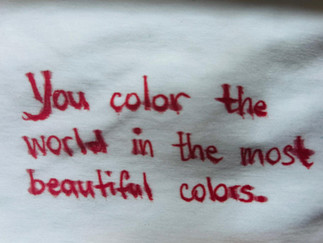 You color the
world in the most
beautiful colors.